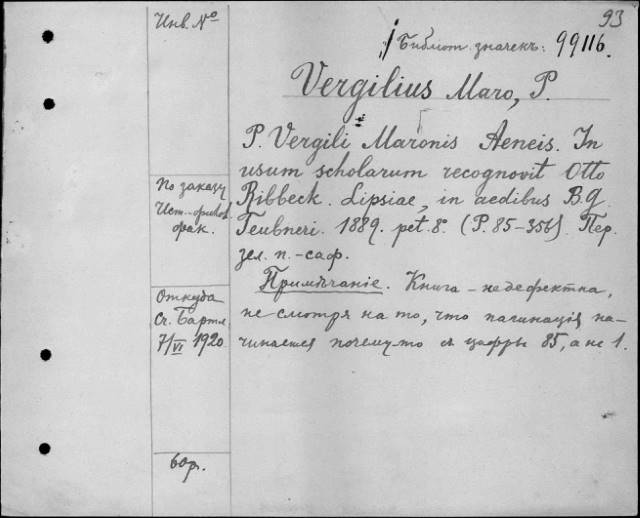 93
Инв. №
Библиот. значекъ: 99116.
Vergilius Maro, P.
P. Vergili Maronis Aeneis. In
usum scholarum recognovit Otto
Ribbeck. Lipsiae, in aedibus B.G.
Teubneri. 1889. pet. 8°. (P. 85-356). Пер.
зел. п.-саф.
Примѣчаніе. Книга – не дефектна,
не смотря на то, что пагинація на-
чинается почему-то съ цифры 85, а не 1.
По заказу
Ист.-филол.
фак.
Откуда
Сч. Бартл
7/VI 1920
60р.